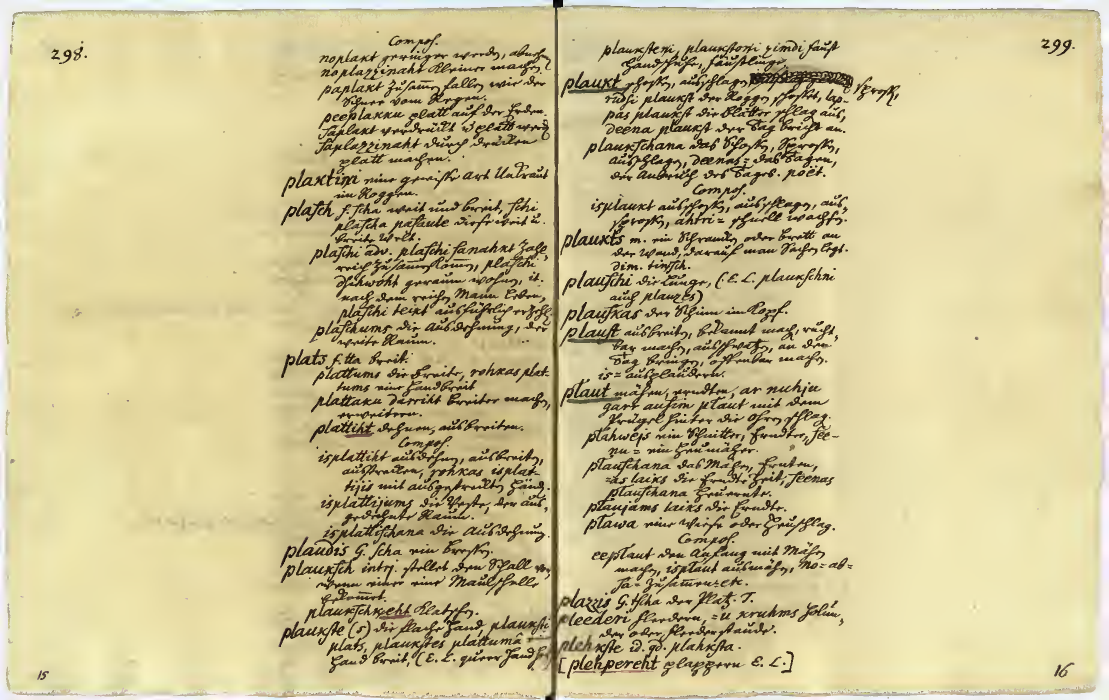 298.
Compos.
noplakt geringer werden, abnehm
noplazzinaht kleiner machen
paplakt zusamen fallen wie der
Schnee vom Regen.
peeplakku platt auf der Erden.
saplakt verdrückt u platt werd
saplazzinaht durch drücken
platt machen.
plaktini eine gewisse Art Unkraut
im Roggen.
plasch f. scha weit und breit, schi
plascha pasaule diese weit u.
breite Welt.
plaschi adv. plaschi sanahkt zahl
reich zusamenkomen, plaschi
dsihwoht geraum wohnen, it.
nach dem reichen Mann leben,
plaschi teikt ausführlich erzehl.
plaschums die Ausdehnung, der
weite Raum.
plats f. tta breit.
plattums die Breite, rohkas plat-
tums eine Handbreit
plattaku darriht breiter machen,
erweitern.
plattiht dehnen, ausbreiten.
Compos.
isplattiht ausdehnen, ausbreiten,
ausstrecken, rohkas isplat-
tijis mit ausgestreckten Händ.
isplattijums die Veste, der aus-
gedehnte Raum.
isplattischana die Ausdehnung.
plaudis G. scha ein Bressen.
plauksch interj. stellet den Schall vor
wenn einer eine Maulschelle
bekommt.
plaukschkeht klatschen.
plaukste (s) die flache Hand, plauksti
plats, plaukstes plattumâ
Hand breit, (E. L. quere Hand
15
299.
plauksteni, plaukstoni zimdi Faust
Handschuhe, Fäustlinge
plaukt schossen, ausschlagen sprossen,
rudsi plaukst der Roggen schosset, lap-
pas plaukst die Blätter schlagen aus,
deena plaukst der Tag bricht an.
plaukschana das Schossen, Sprossen,
ausschlagen, deenas = das Tagen,
der Anbruch des Tages. poët.
Compos.
isplaukt ausschossen, ausschlagen, aus-
sprossen, ahtri = schnell wachsen.
plaukts m. ein Schrank oder Brett an
der Wand, darauf man Sachen legt.
dim. tinsch.
plauschi die Lunge, (E. L. plaukschni
auch plauzes)
plauskas der Schinn im Kopf.
plaust ausbreiten, bekannt machen, rucht-
bar machen, ausschwatzen, an den
Tag bringen, offenbar machen.
is = ausplaudern.
plaut mähen, erndten, ar nuhju
garr ausim plaut mit dem
Prügel hinter die Ohren schlag.
plahwejs ein Schnitter, Erndter, see-
nu = ein Heumäher.
plauschana das Mähen, Ernten,
=as laiks die Erndte Zeit, seenas
plauschana Heuernte.
plaujams laiks die Erndte.
plawa eine Wiese oder Heuschlag.
Compos.
eeplaut den Anfang mit Mähen
machen, isplaut ausmähen, no= at=
sa= zusammen etc.
plazzis G. tscha der Platz. T.
pleederi Fliedern, =u kruhms Holun-
der oder Fliederstaude.
plehkste id. qd. plahksta.
[plehpereht plappern E. L.]
16